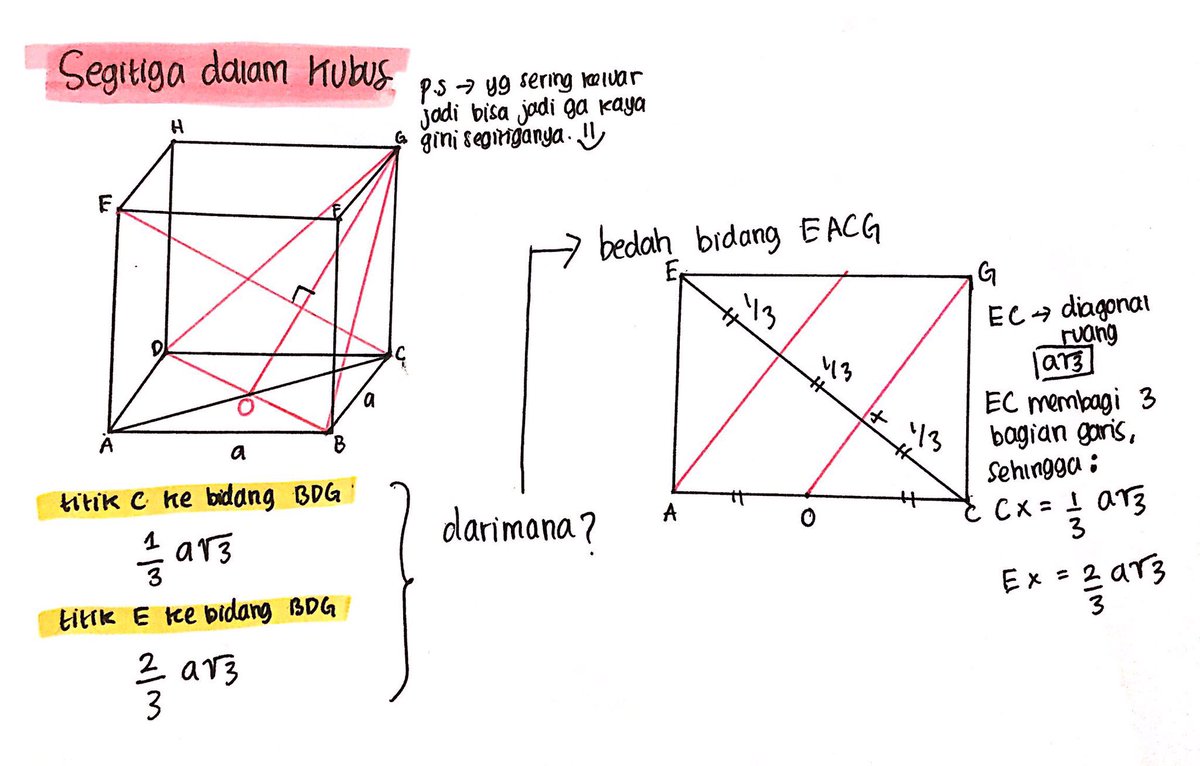 Segitiga dalam Kubus
p.s → yg sering keluar
jadi bisa jadi ga kaya
gini segitiganya.
H
G
E
F
D
C
O
a
A
B
a
titik C ke bidang BDG
1/3 a√3
titik E ke bidang BDG
2/3 a√3
darimana?
→ bedah bidang EACG
E
G
1/3
1/3
x
1/3
A
O
C
EC → diagonal
ruang
a√3
EC membagi 3
bagian garis,
sehingga :
Cx = 1/3 a√3
Ex = 2/3 a√3